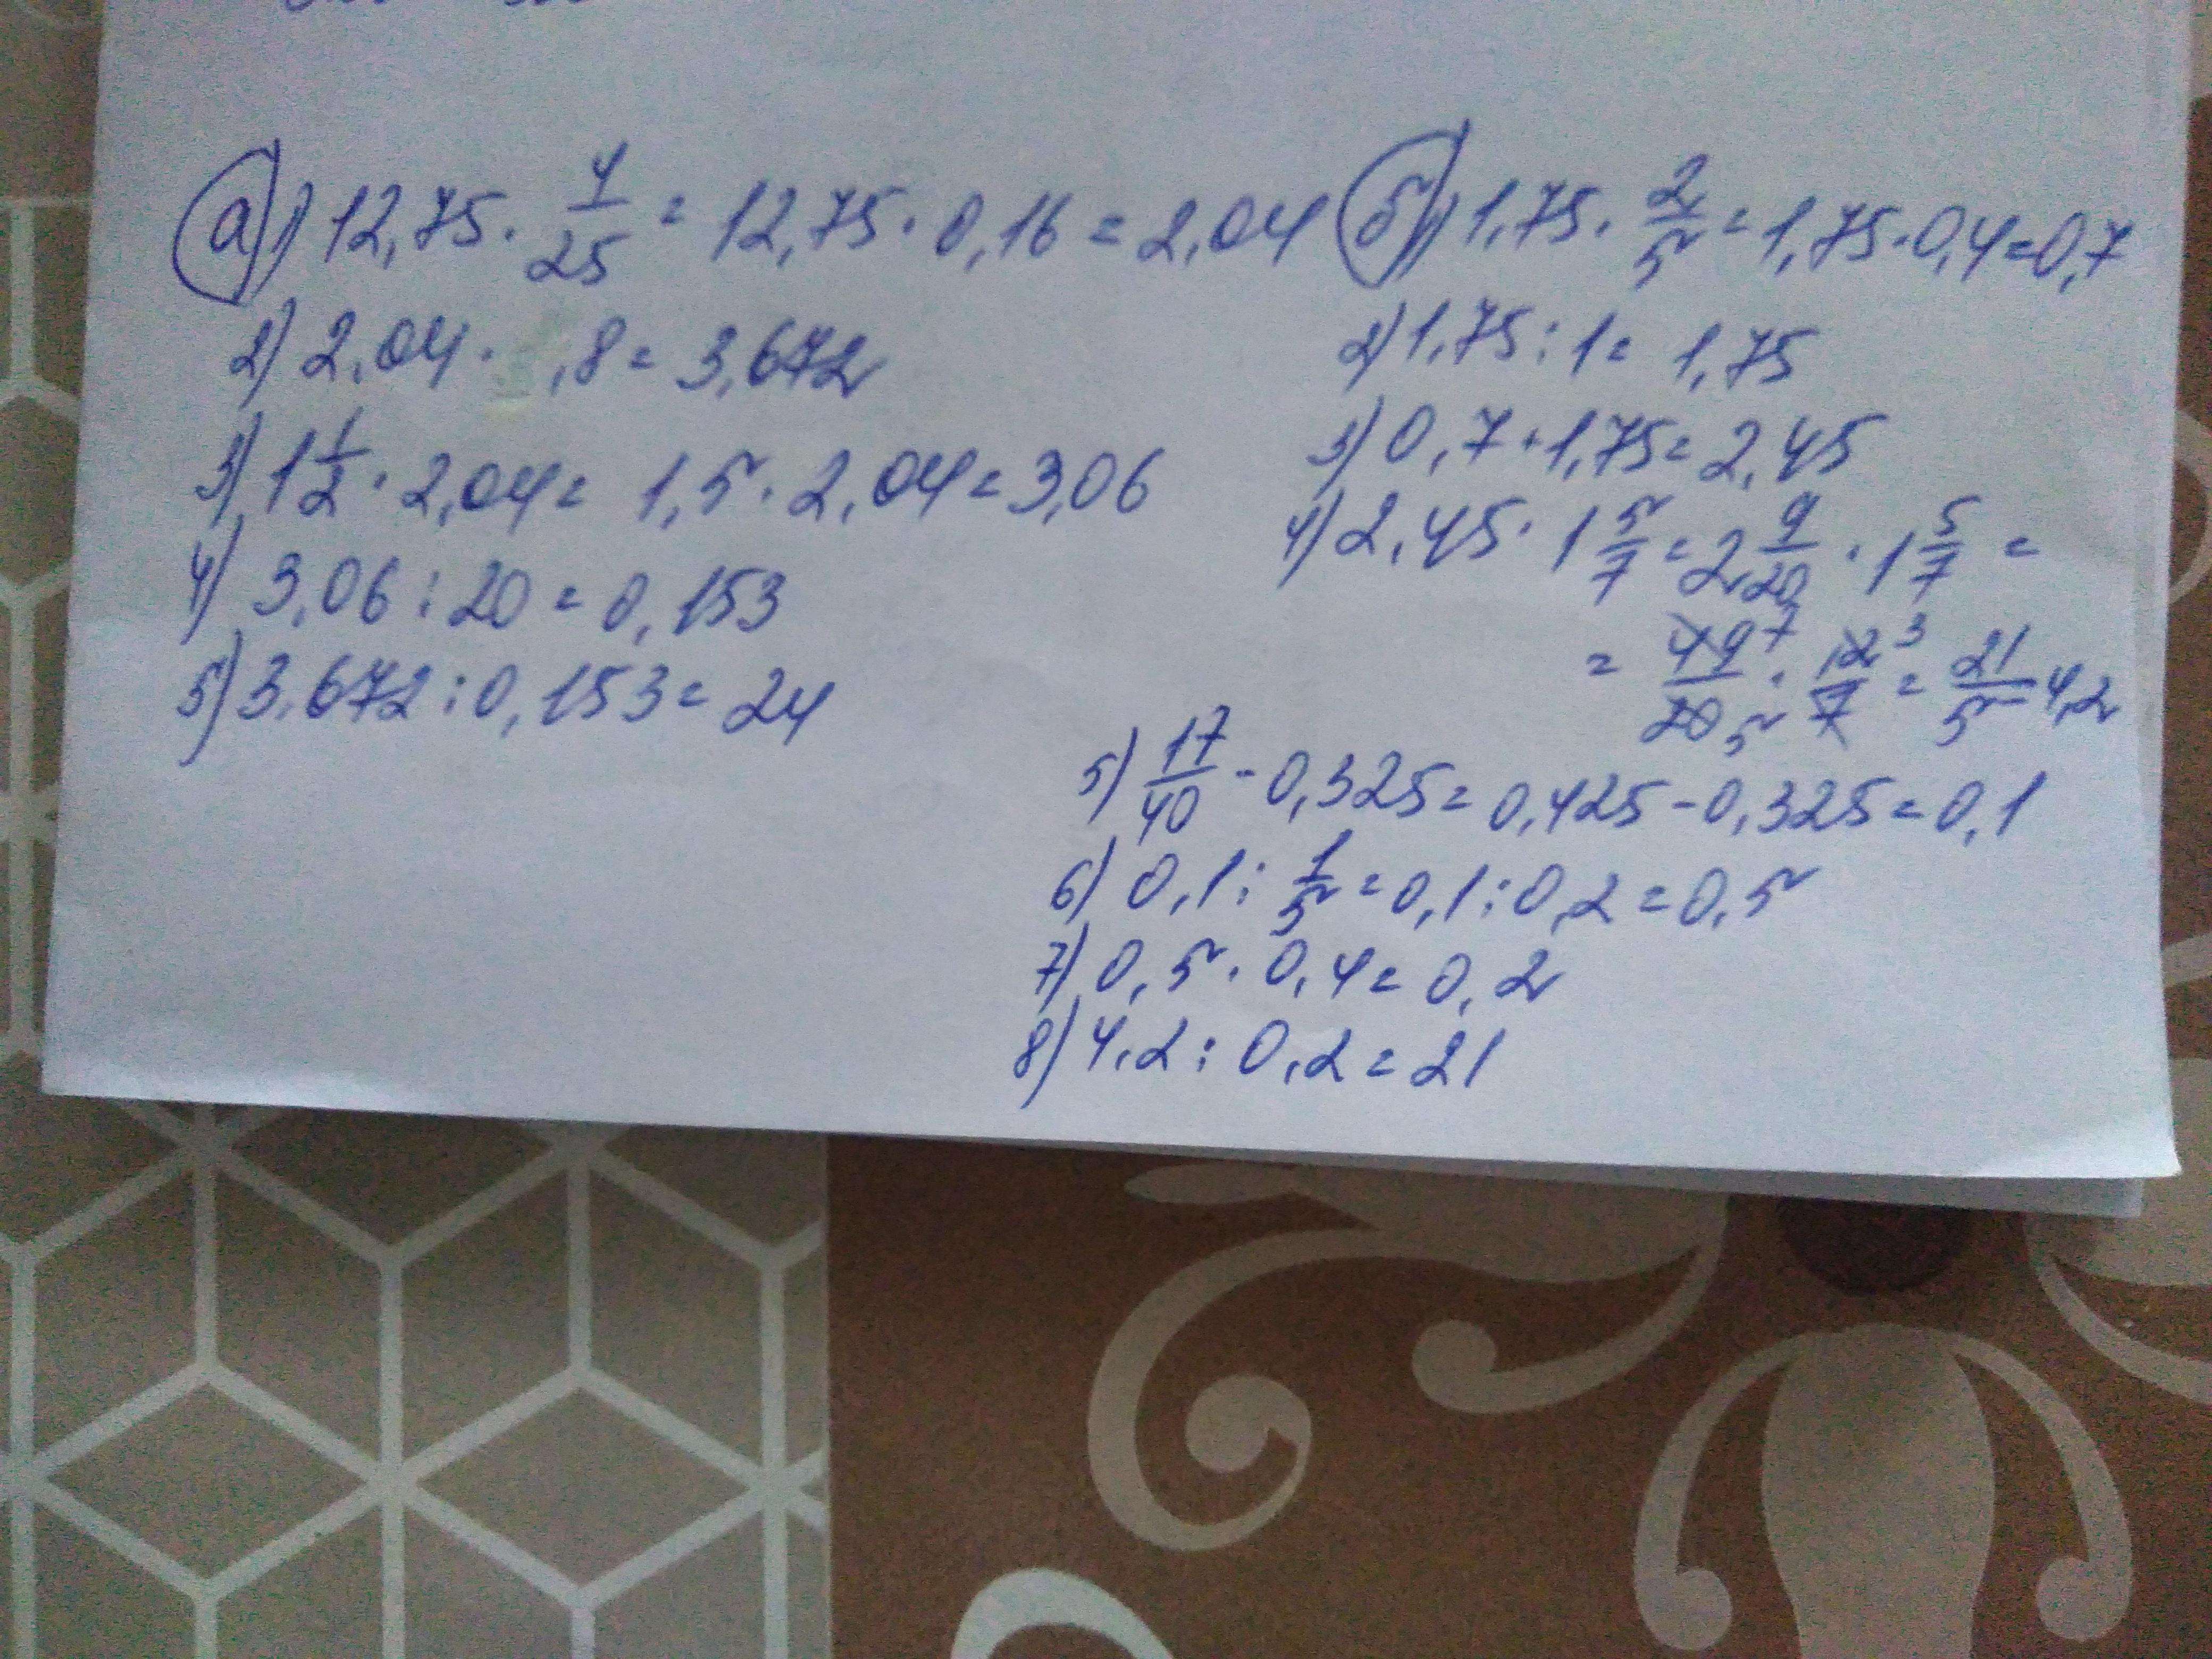 а) 1) 12,75 · 4/25 = 12,75 · 0,16 = 2,04
2) 2,04 · ,8 = 3,672
3) 1 1/2 · 2,04 = 1,5 · 2,04 = 3,06
4) 3,06 : 20 = 0,153
5) 3,672 : 0,153 = 24
б) 1) 1,75 · 2/5 = 1,75 · 0,4 = 0,7
2) 1,75 : 1 = 1,75
3) 0,7 + 1,75 = 2,45
4) 2,45 · 1 5/7 = 2 9/20 · 1 5/7 =
= 49 7/20 5 · 12 3/7 = 21/5 = 4,2
5) 17/40 - 0,325 = 0,425 - 0,325 = 0,1
6) 0,1 : 1/5 = 0,1 : 0,2 = 0,5
7) 0,5 · 0,4 = 0,2
8) 4,2 : 0,2 = 21